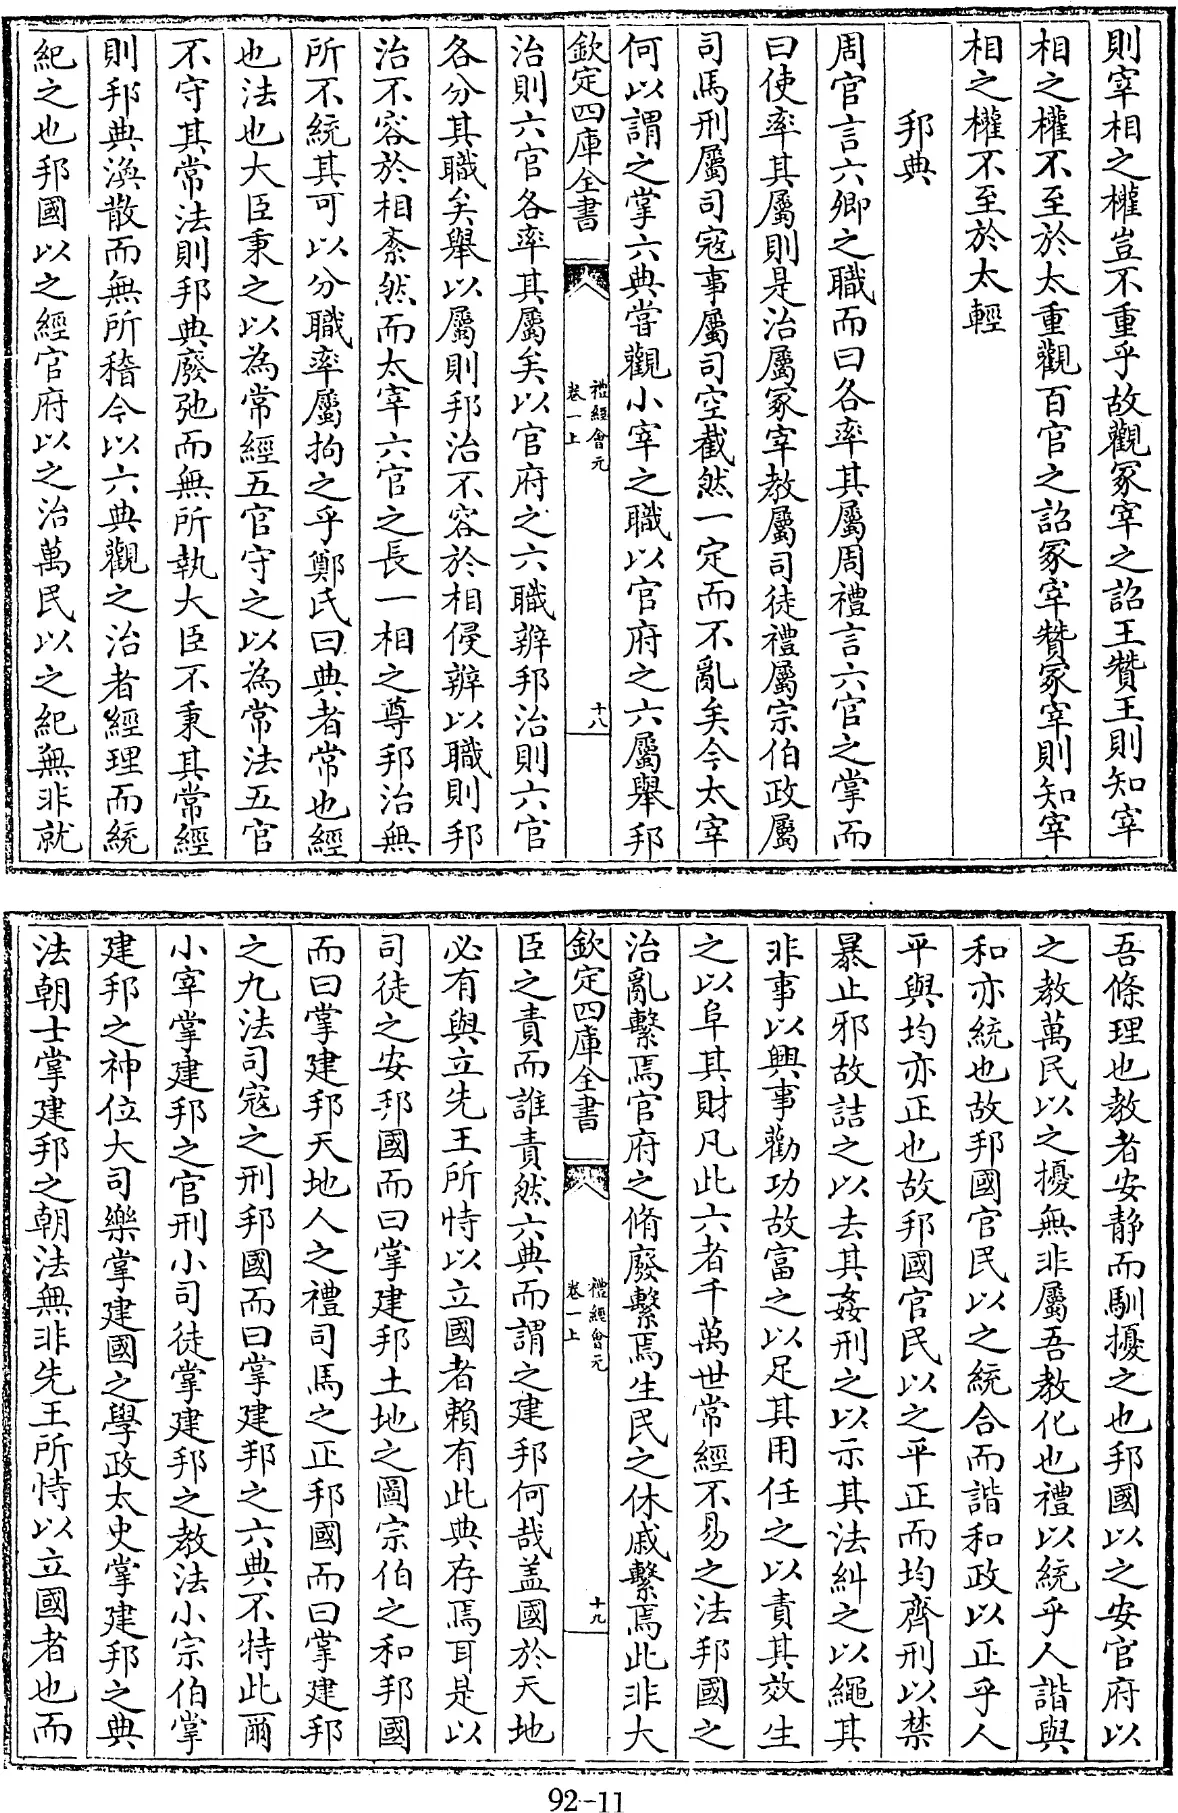 則宰相之權豈不重乎故觀冢宰之詔王贊王則知宰
相之權不至於太重觀百官之詔冢宰贊冢宰則知宰
相之權不至於太輕
邦典
周官言六卿之職而曰各率其屬周禮言六官之掌而
曰使率其屬則是治屬冢宰教屬司徒禮屬宗伯政屬
司馬刑屬司寇事屬司空截然一定而不亂矣今太宰
何以謂之掌六典嘗觀小宰之職以官府之六屬舉邦
欽定四庫全書
禮經會元
卷一上
十八
治則六官各率其屬矣以官府之六職辨邦治則六官
各分其職矣舉以屬則邦治不容於相侵辨以職則邦
治不容於相紊然而太宰六官之長一相之尊邦治無
所不統其可以分職率屬拘之乎鄭氏曰典者常也經
也法也大臣秉之以為常經五官守之以為常法五官
不守其常法則邦典廢弛而無所執大臣不秉其常經
則邦典渙散而無所稽今以六典觀之治者經理而統
紀之也邦國以之經官府以之治萬民以之紀無非就
吾條理也教者安靜而馴擾之也邦國以之安官府以
之教萬民以之擾無非屬吾教化也禮以統乎人諧與
和亦統也故邦國官民以之統合而諧和政以正乎人
平與均亦正也故邦國官民以之平正而均齊刑以禁
暴止邪故詰之以去其姦刑之以示其法糾之以繩其
非事以興事勸功故富之以足其用任之以責其效生
之以阜其財凡此六者千萬世常經不易之法邦國之
治亂繫焉官府之脩廢繫焉生民之休戚繫焉此非大
欽定四庫全書
禮經會元
卷一上
十九
臣之責而誰責然六典而謂之建邦何哉盖國於天地
必有與立先王所恃以立國者賴有此典存焉耳是以
司徒之安邦國而曰掌建邦土地之圖宗伯之和邦國
而曰掌建邦天地人之禮司馬之正邦國而曰掌建邦
之九法司寇之刑邦國而曰掌建邦之六典不特此爾
小宰掌建邦之官刑小司徒掌建邦之教法小宗伯掌
建邦之神位大司樂掌建國之學政太史掌建邦之典
法朝士掌建邦之朝法無非先王所恃以立國者也而
92-11